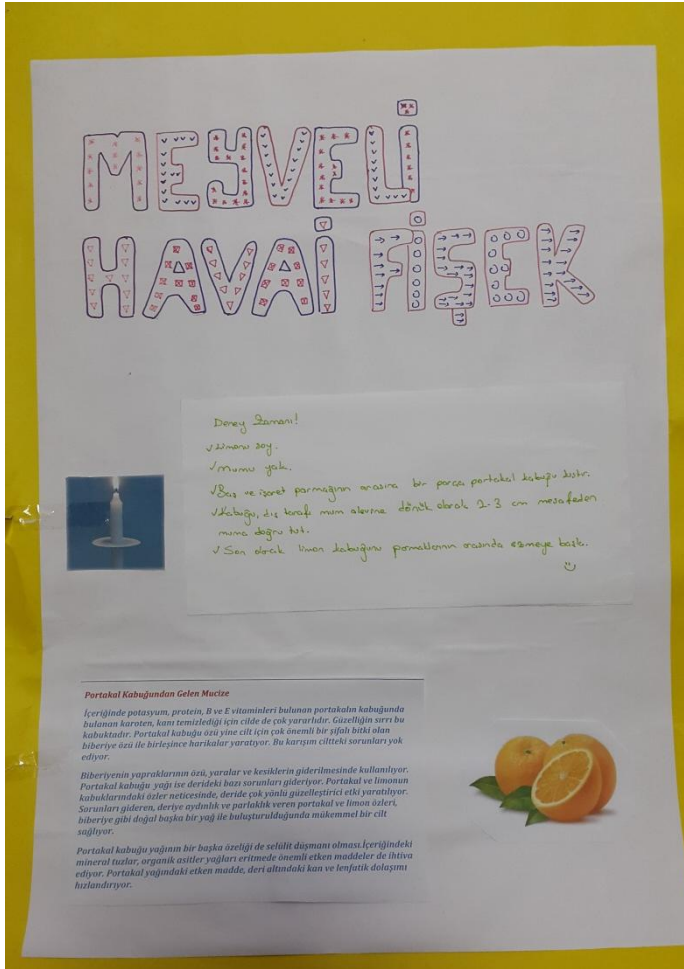 MEYVELİ
HAVAİ FİŞEK
Deney Zamanı!
✓Limonu soy.
✓Mumu yak.
✓Baş ve işaret parmağının arasına bir parça portakal kabuğu kıstır.
✓Kabuğu, dış tarafı mum alevine dönük olarak 2-3 cm mesafeden
muma doğru tut.
✓Son olarak limon kabuğunu parmaklarının arasında ezmeye başla.
Portakal Kabuğundan Gelen Mucize
İçeriğinde potasyum, protein, B ve E vitaminleri bulunan portakalın kabuğunda
bulanan karoten, kanı temizlediği için cilde de çok yararlıdır. Güzelliğin sırrı bu
kabuktadır. Portakal kabuğu özü yine cilt için çok önemli bir şifalı bitki olan
biberiye özü ile birleşince harikalar yaratıyor. Bu karışım ciltteki sorunları yok
ediyor.
Biberiyenin yapraklarının özü, yaralar ve kesiklerin giderilmesinde kullanılıyor.
Portakal kabuğu yağı ise derideki bazı sorunları gideriyor. Portakal ve limonun
kabuklarındaki özler neticesinde, deride çok yönlü güzelleştirici etki yaratılıyor.
Sorunları gideren, deriye aydınlık ve parlaklık veren portakal ve limon özleri,
biberiye gibi doğal başka bir yağ ile buluşturulduğunda mükemmel bir cilt
sağlıyor.
Portakal kabuğu yağının bir başka özeliği de selülit düşmanı olması.İçeriğindeki
mineral tuzlar, organik asitler yağları eritmede önemli etken maddeler de ihtiva
ediyor. Portakal yağındaki etken madde, deri altındaki kan ve lenfatik dolaşımı
hızlandırıyor.